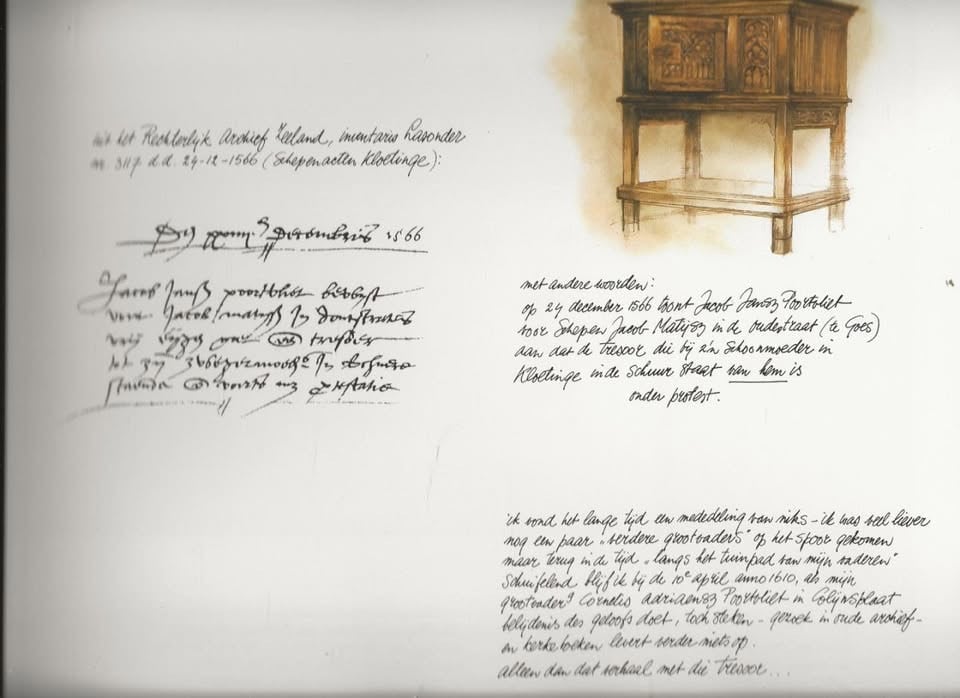 uit het Rechterlijk Archief Zeeland, inventaris Lasonder
nr. 3117 d.d. 24-12-1566 (Schepenacten Kloetinge):
Decembris 1566
Jacob Janss poortvliet
Jacob matyss In
tresoor
tot zijn In
staende
met andere woorden:
op 24 december 1566 toont Jacob Jansz Poortvliet
voor Schepen Jacob Matijsz in de oudestraat (te Goes)
aan dat de tresoor die bij z'n schoonmoeder in
Kloetinge in de schuur staat van hem is
onder protest.
ik vond het lange tijd een mededeling van niks – ik was veel liever
nog een paar „verdere grootvaders” op het spoor gekomen
maar terug in de tijd „langs het tuinpad van mijn vaderen”
schuifelend blijf ik bij de 10e april anno 1610, als mijn
grootvader9 Cornelis adriaensz Poortvliet in Colijnsplaat
belijdenis des geloofs doet, toch steken – gezoek in oude archief-
en kerkeboeken levert verder niets op.
alleen dan dat verhaal met die tresoor...